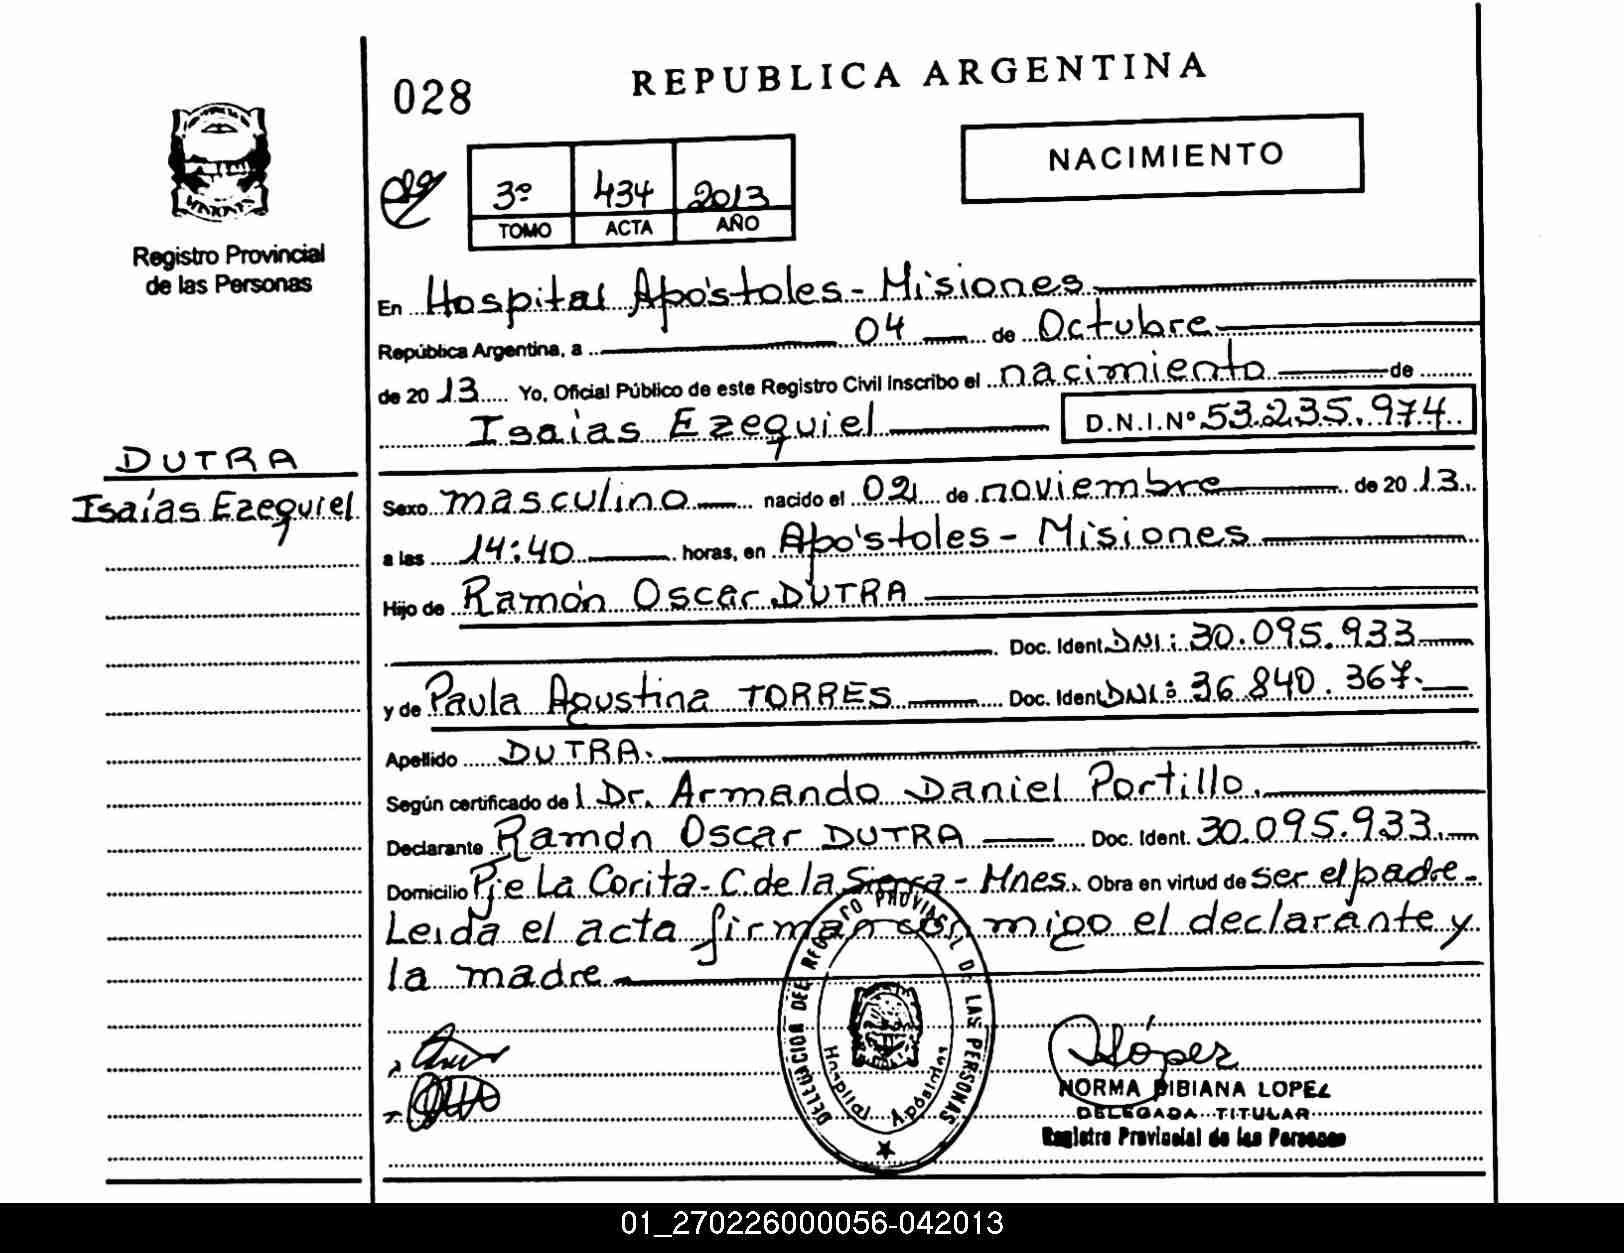 028
REPUBLICA ARGENTINA
NACIMIENTO
3º 434 2013
TOMO ACTA AÑO
MISIONES
Registro Provincial
de las Personas
En Hospital Apóstoles - Misiones
República Argentina, a 04 de Octubre
de 2013 Yo, Oficial Público de este Registro Civil Inscribo el nacimiento de
Isaías Ezequiel D.N.I.Nº 53.235.974
DUTRA
Isaías Ezequiel
Sexo masculino nacido el 02 de noviembre de 2013.
a las 14:40 horas, en Apóstoles - Misiones
Hijo de Ramón Oscar DUTRA
Doc. Ident. DNI: 30.095.933
y de Paula Agustina TORRES Doc. Ident. DNI: 36.840.367.
Apellido DUTRA.
Según certificado de l Dr. Armando Daniel Portillo.
Declarante Ramón Oscar DUTRA Doc. Ident. 30.095.933.
Domicilio Pje La Corita - C. de la Sierra - Mnes. Obra en virtud de ser el padre -
Leída el acta firman con migo el declarante y
la madre
DELEGACION DEL REGISTRO PROVINCIAL DE LAS PERSONAS
Hospital Apóstoles
López
NORMA BIBIANA LOPEZ
DELEGADA TITULAR
Registro Provincial de las Personas
01_270226000056-042013